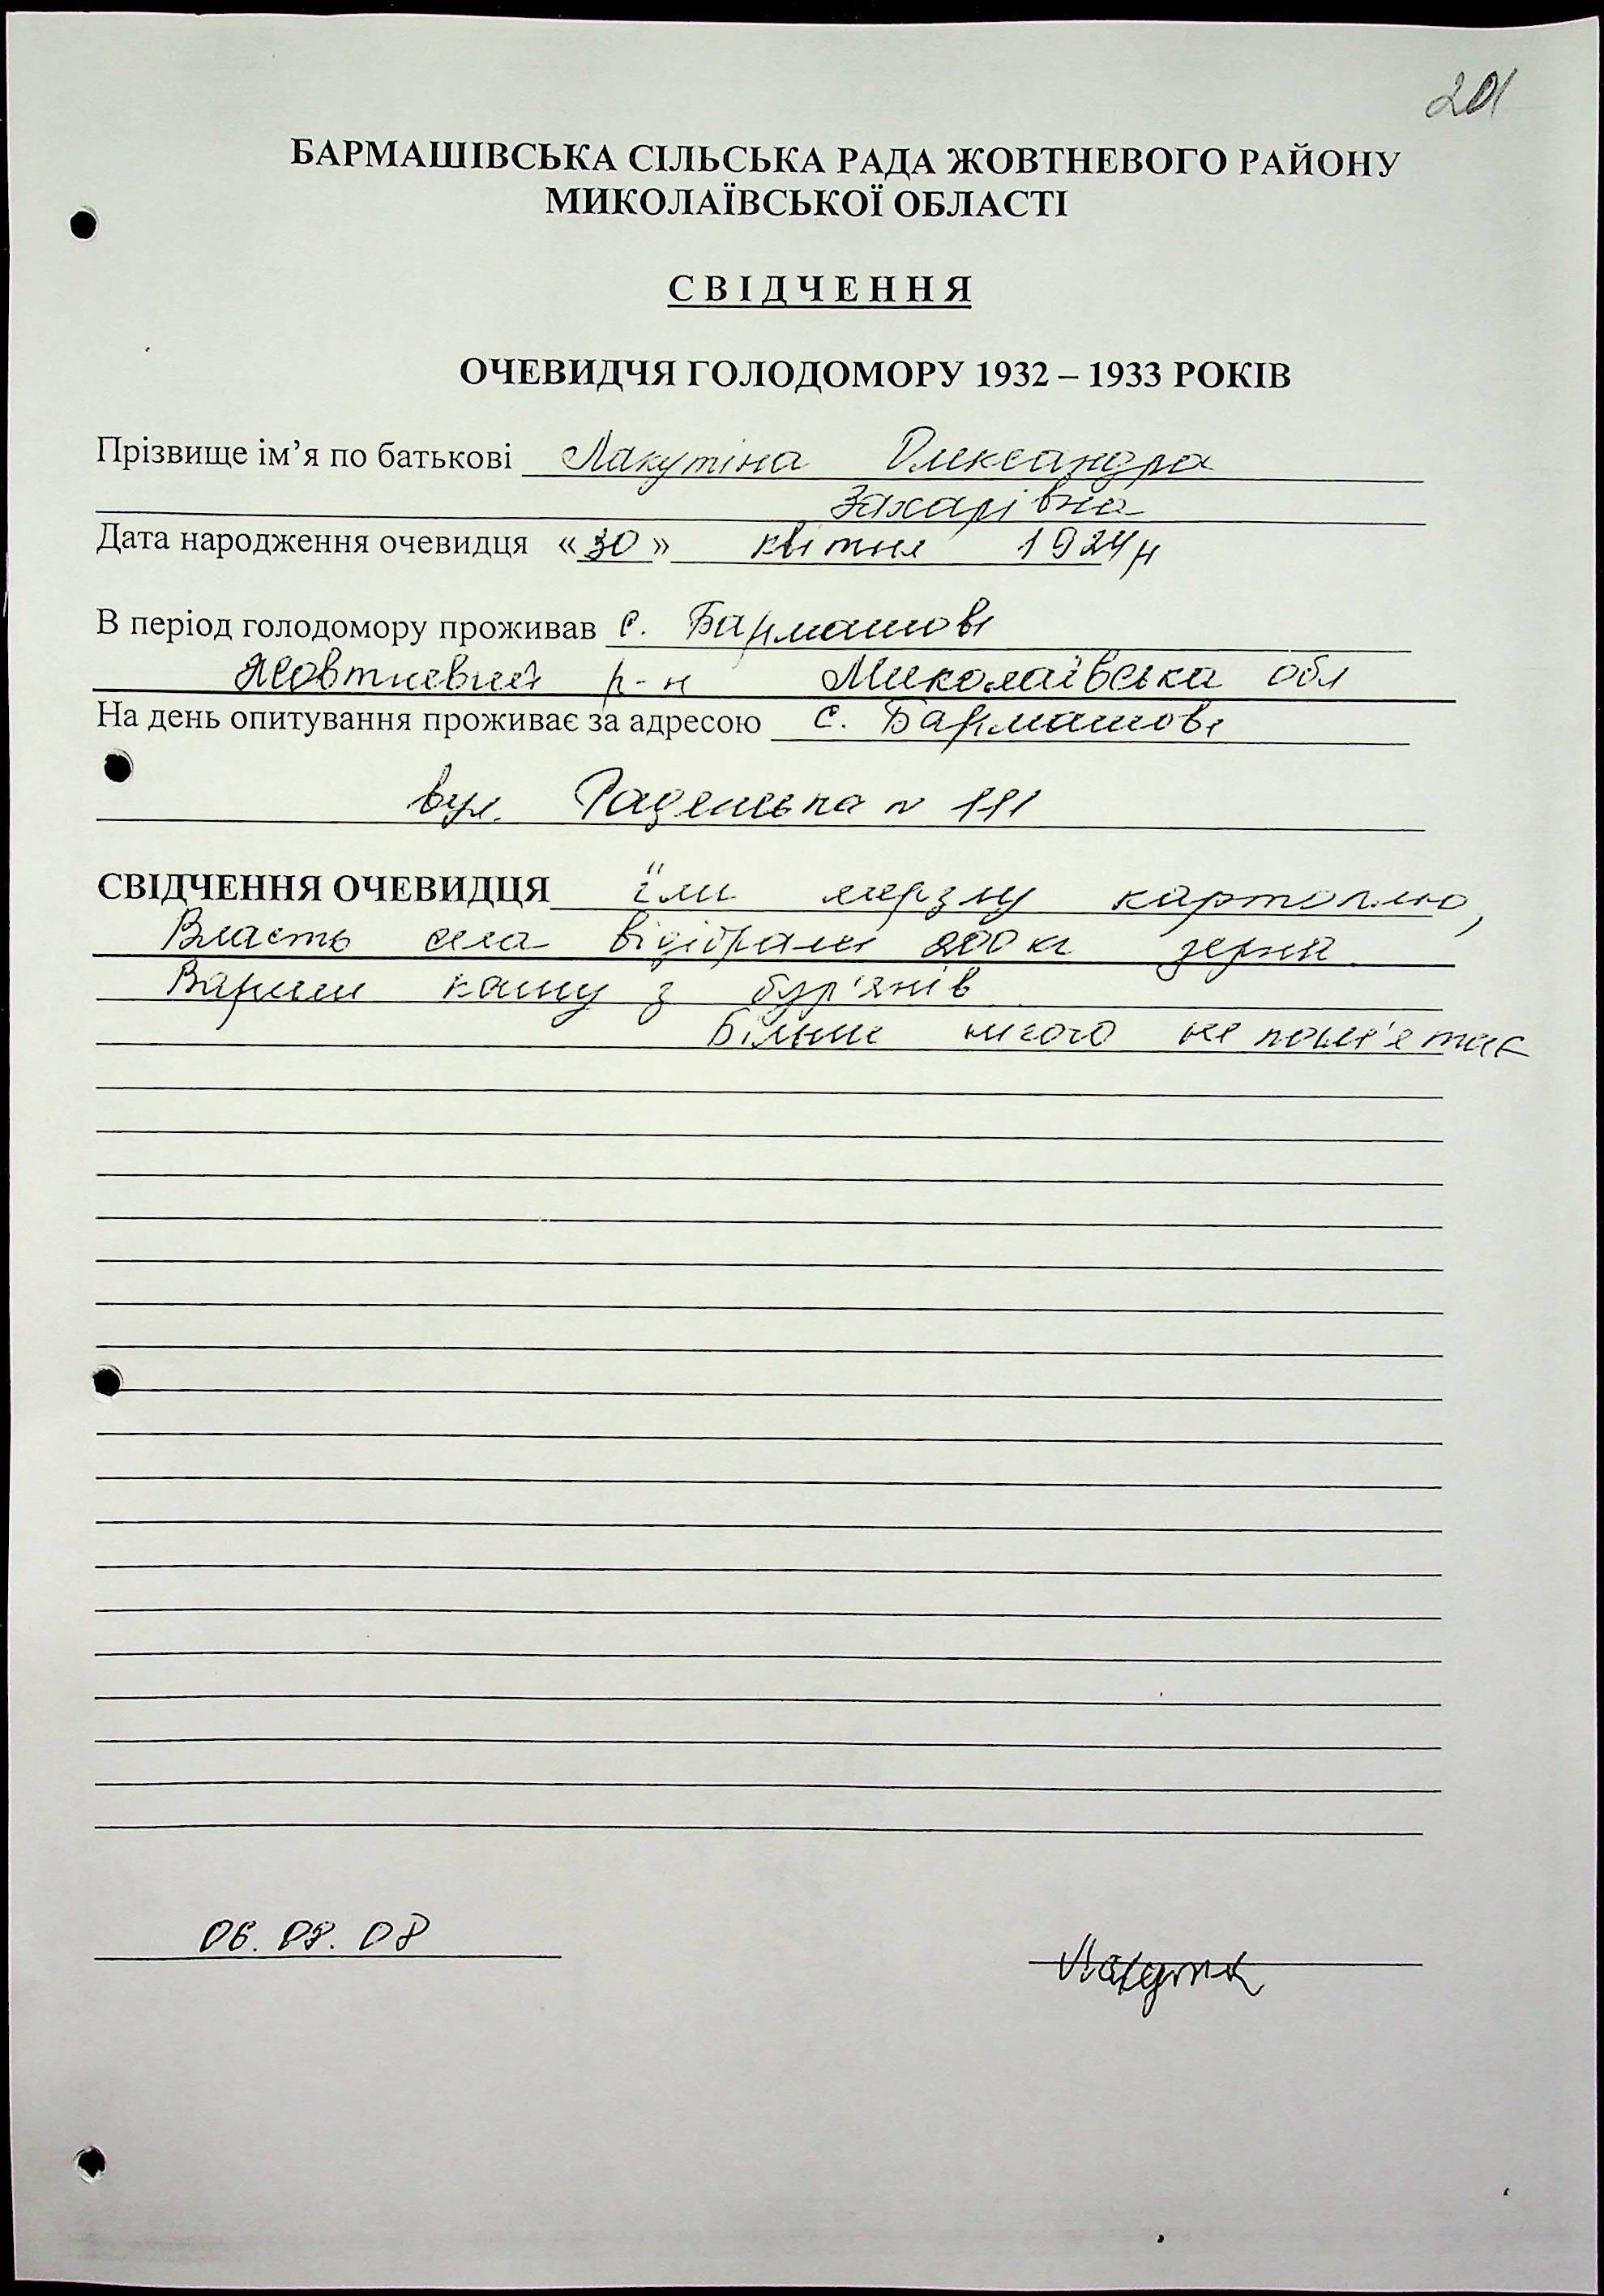 201
БАРМАШІВСЬКА СІЛЬСЬКА РАДА ЖОВТНЕВОГО РАЙОНУ
МИКОЛАЇВСЬКОЇ ОБЛАСТІ
СВІДЧЕННЯ
ОЧЕВИДЧЯ ГОЛОДОМОРУ 1932 – 1933 РОКІВ
Прізвище ім’я по батькові Лакутіна Олександра
Захарівна
Дата народження очевидця «30» квітня 1924р
В період голодомору проживав с. Бармашове
Жовтневий р-н Миколаївська обл
На день опитування проживає за адресою с. Бармашове
вул. Раденська № 111
СВІДЧЕННЯ ОЧЕВИДЦЯ їли мерзлу картоплю,
Власть села відібрали 200 кг зерна.
Варили кашу з бур'янів
Більше нічого не пам'ятає
06. 08. 08